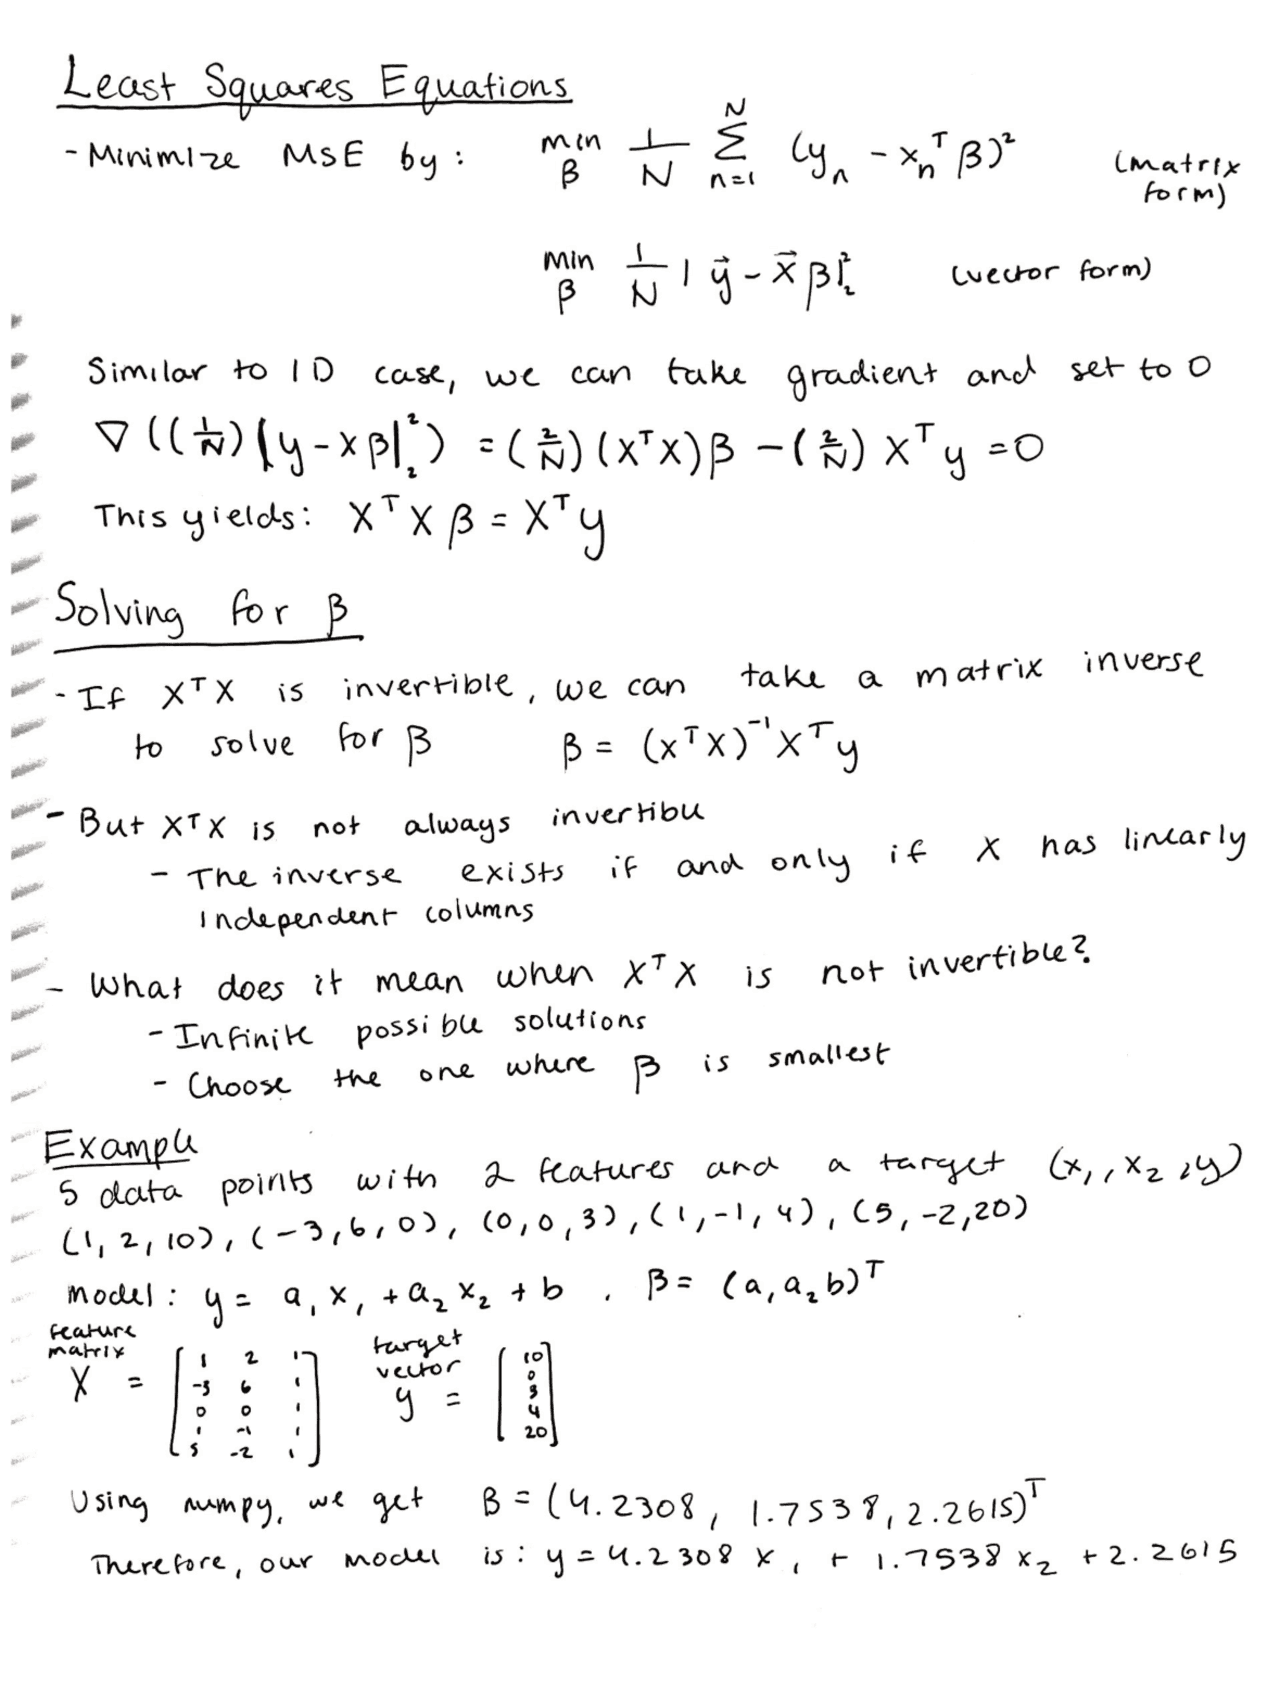 Least Squares Equations
- Minimize MSE by: min β 1/N Σ n=1 N (yₙ - xₙᵀ β)² (matrix form)
min β 1/N | y⃗ - x⃗ β|₂² (vector form)
Similar to 1D case, we can take gradient and set to 0
∇ ((1/N) |y - xβ|₂²) = (2/N) (XᵀX)β - (2/N) Xᵀy = 0
This yields: XᵀX β = Xᵀy
Solving for β
- If XᵀX is invertible, we can take a matrix inverse
to solve for β β = (XᵀX)⁻¹Xᵀy
- But XᵀX is not always invertible
- The inverse exists if and only if X has linearly
independent columns
- What does it mean when XᵀX is not invertible?
- Infinite possible solutions
- Choose the one where β is smallest
Example
5 data points with 2 features and a target (x₁, x₂, y)
(1, 2, 10), (-3, 6, 0), (0, 0, 3), (1, -1, 4), (5, -2, 20)
Model: y = a₁x₁ + a₂x₂ + b . β = (a₁ a₂ b)ᵀ
feature matrix target vector
X = [ 1 2 1 y = [ 10
-3 6 1 0
0 0 1 3
1 -1 1 4
5 -2 1 ] 20 ]
Using numpy, we get β = (4.2308, 1.7538, 2.2615)ᵀ
Therefore, our model is: y = 4.2308 x₁ + 1.7538 x₂ + 2.2615